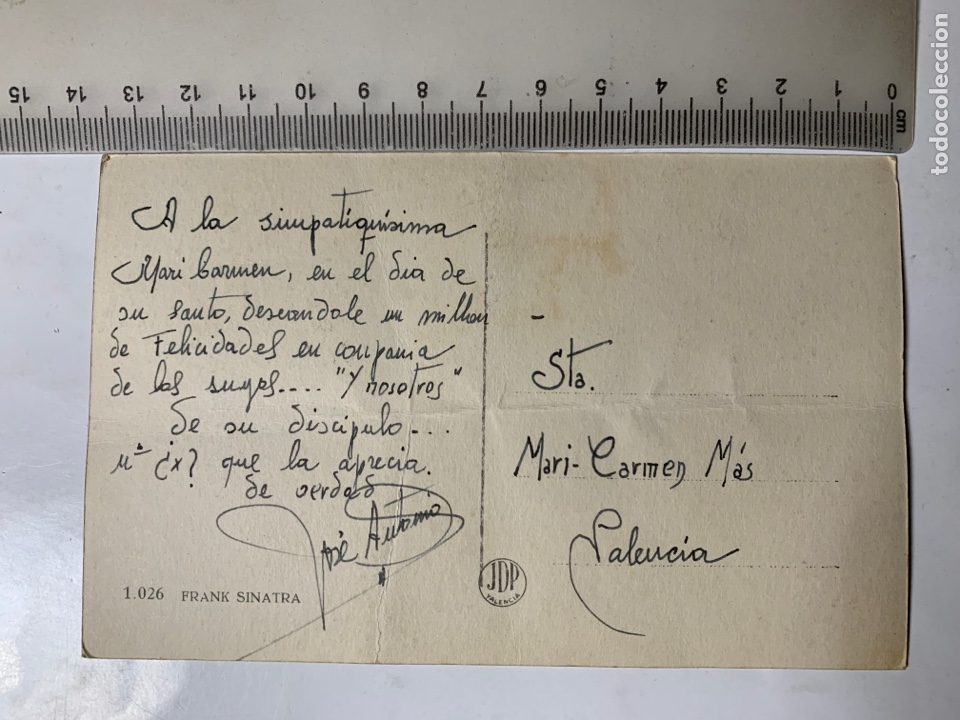 15 14 13 12 11 10 9 8 7 6 5 4 3 2 1 0 cm
A la simpatiquísima
Mari Carmen, en el dia de
su santo, deseandole un millon
de Felicidades en compania
de los suyos.... "Y nosotros"
de su discipulo....
nº ¿x? que la aprecia.
de verdad
José Antonio
1.026 FRANK SINATRA
JDP
VALENCIA
-
Sta.
Mari-Carmen Más
Valencia
todocoleccion